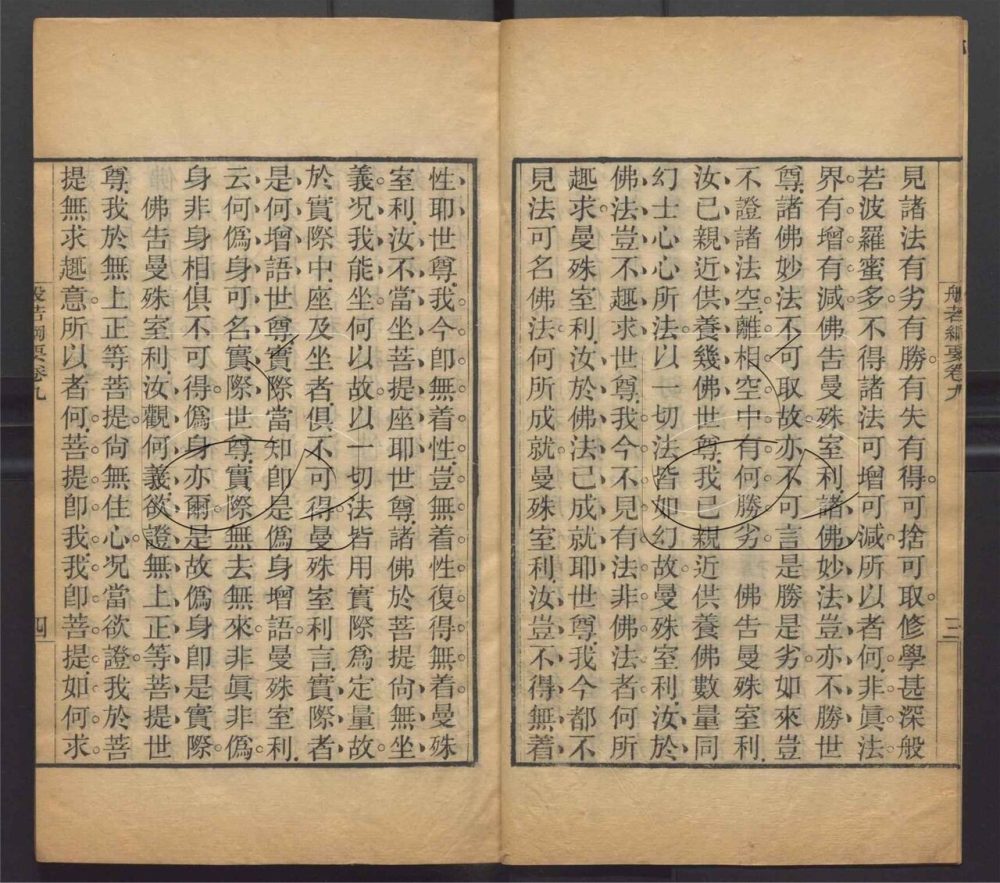 般若綱要卷九
三
見諸法有劣有勝。有失有得。可捨可取。修學甚深般
若波羅蜜多。不得諸法可增可減。所以者何。非眞法
界。有增有減。佛告曼殊室利、諸佛妙法豈亦不勝、世
尊、諸佛妙法不可取故、亦不可言是勝是劣。如來豈
不證諸法空、離相空中有何勝劣。 佛告曼殊室利
汝已親近供養幾佛、世尊、我已親近供養佛數量同
幻士心心所法、以一切法皆如幻故。曼殊室利、汝於
佛法豈不趣求、世尊、我今不見有法非佛法者、何所
趣求。曼殊室利、汝於佛法已成就耶、世尊、我今都不
見法可名佛法、何所成就。曼殊室利、汝豈不得無着
性耶、世尊、我今卽無着性。豈無着性復得無着。曼殊
室利、汝不當坐菩提座耶、世尊、諸佛於菩提尙無坐
義。况我能坐。何以故、以一切法皆用實際爲定量故。
於實際中、座及坐者、俱不可得、曼殊室利言、實際者、
是何增語、世尊、實際當知卽是僞身增語。曼殊室利
云何僞身可名實際、世尊、實際無去無來、非眞非僞。
身非身相、俱不可得。僞身亦爾。是故僞身卽是實際。
佛告曼殊室利、汝觀何義、欲證無上正等菩提、世
尊、我於無上正等菩提。尙無住心。况當欲證。我於菩
提無求趣意。所以者何。菩提卽我。我卽菩提。如何求
般若綱要卷九
四